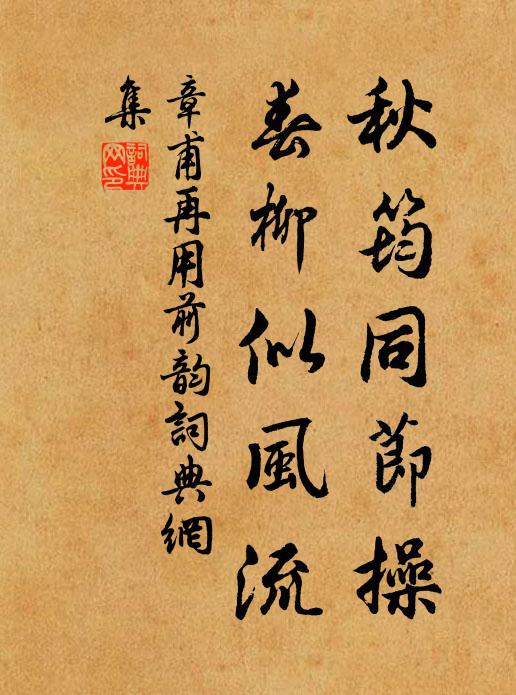 秋筠同節操
春柳似風流
章甫再用前韵詞典網
集
詞典網印